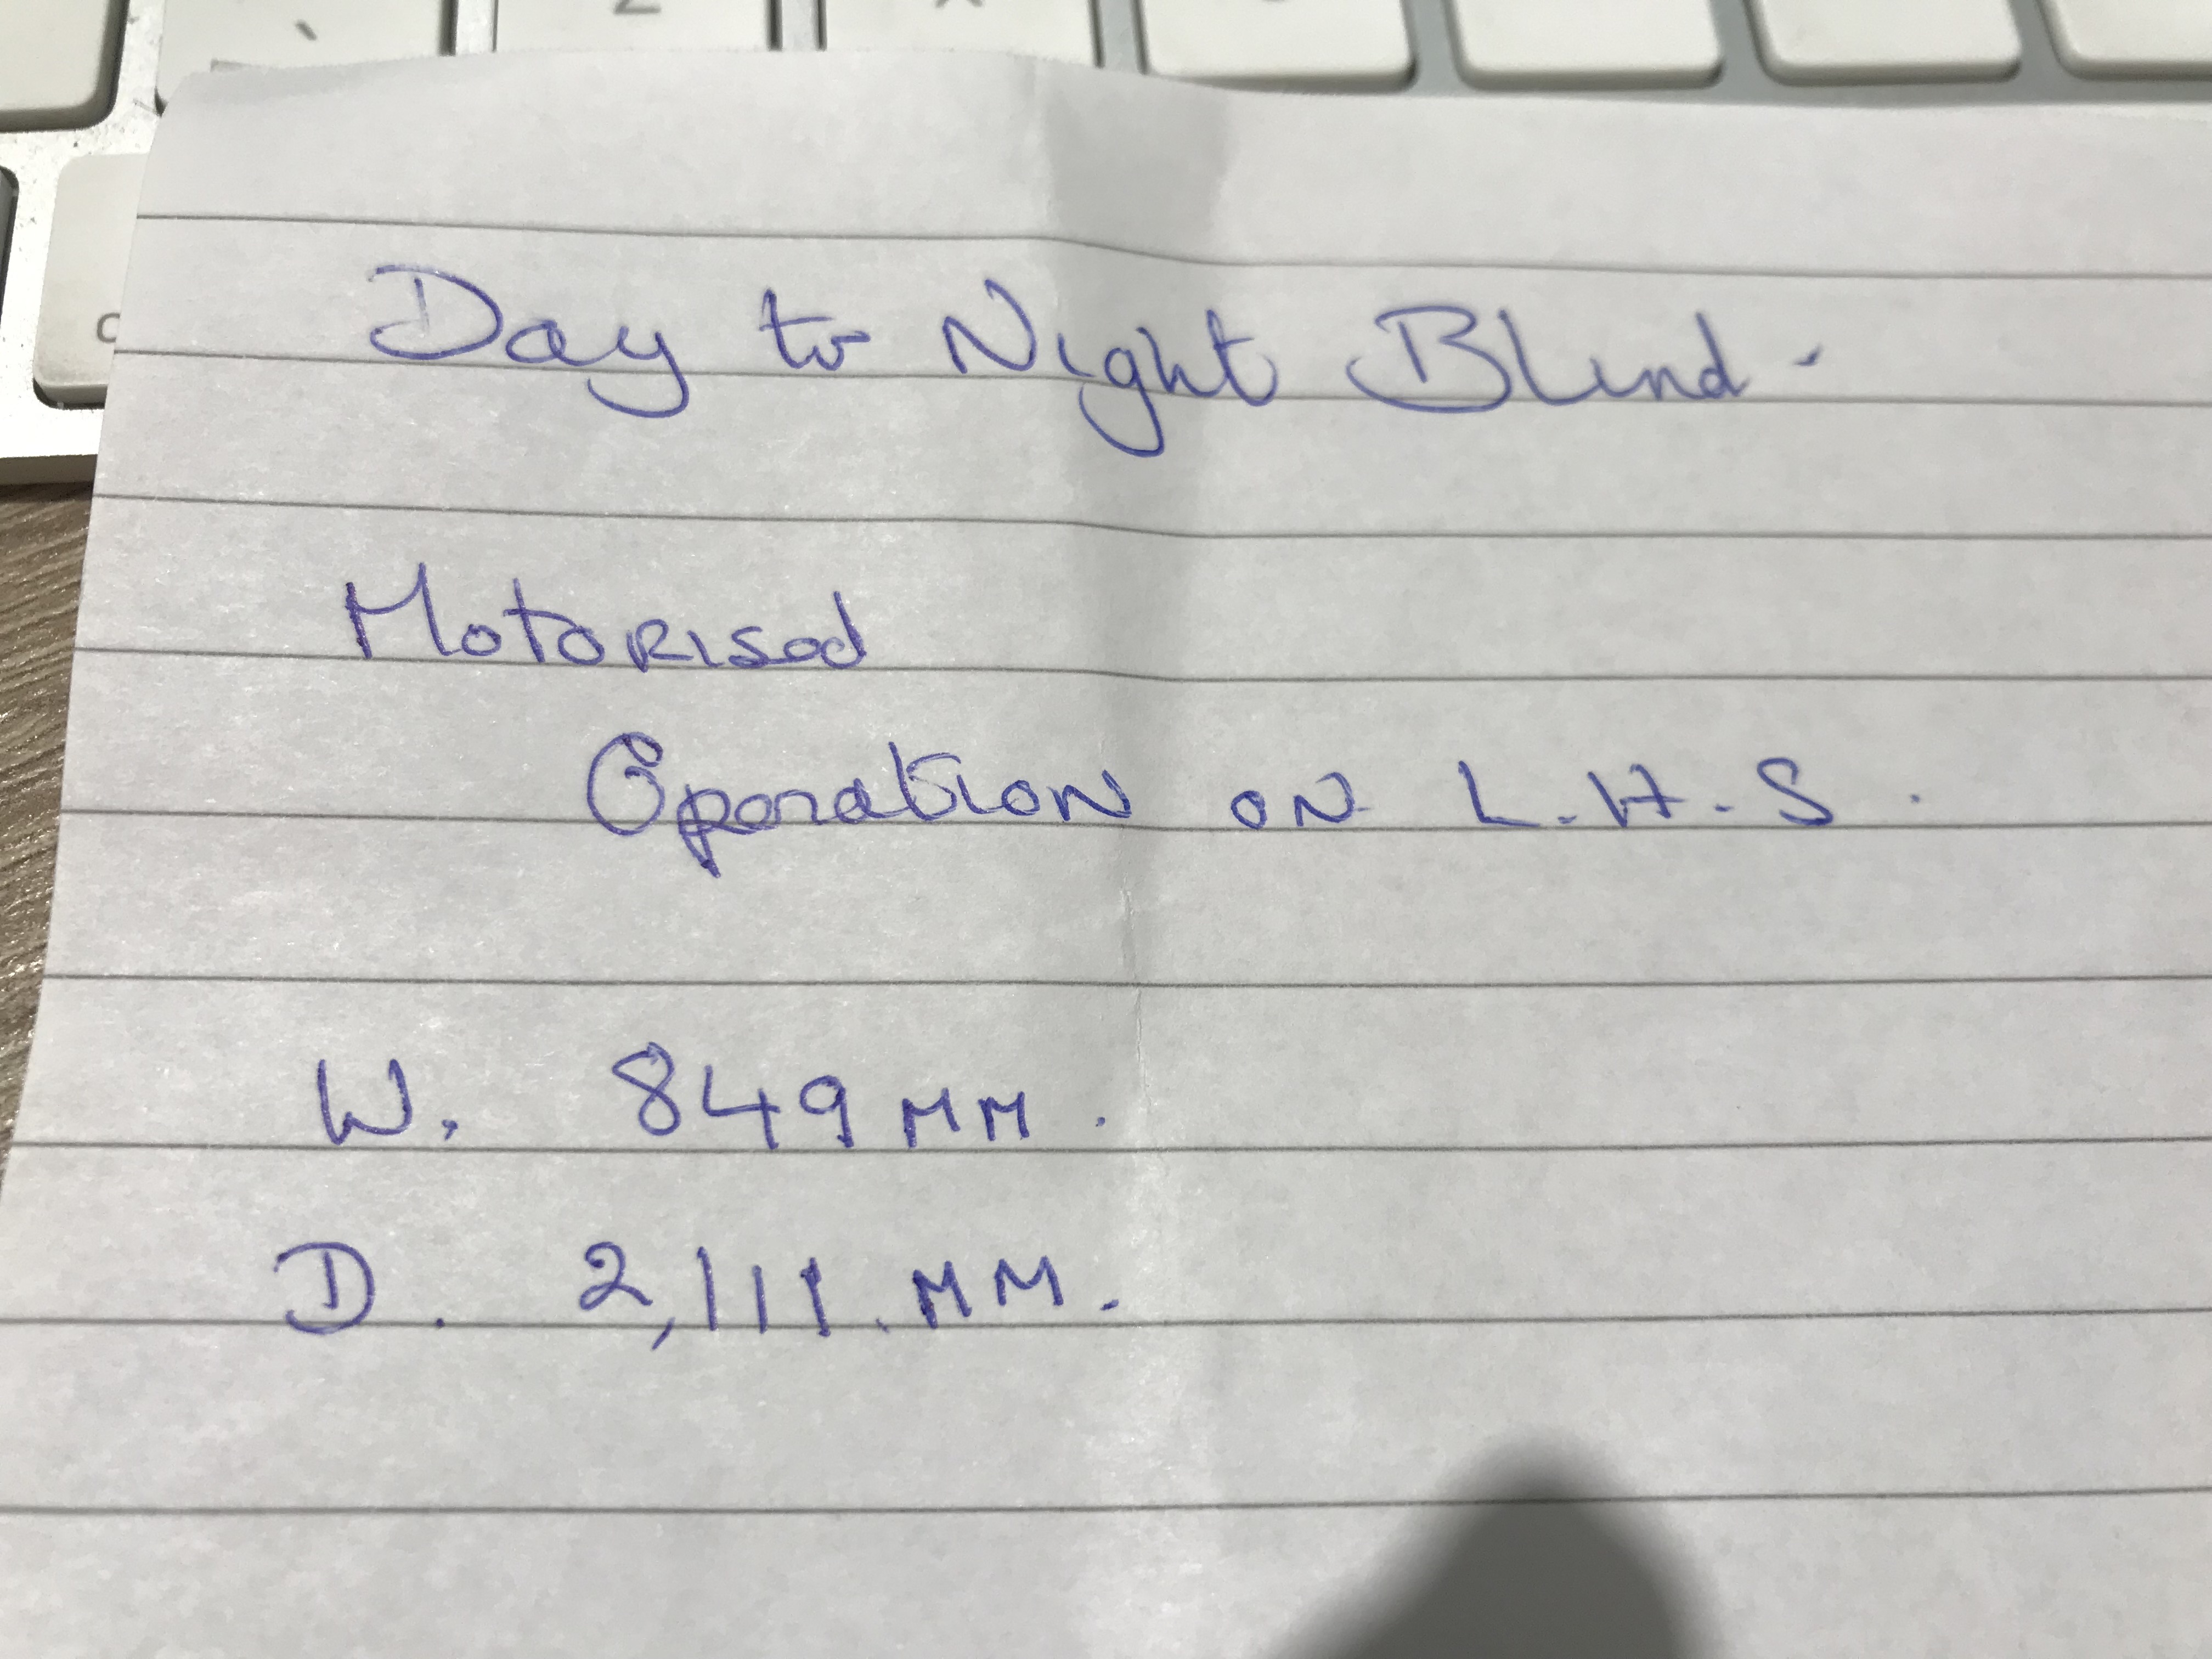 Day to Night Blind.
Motorised
Operation on L.H.S.
W. 849 MM.
D. 2,111 MM.